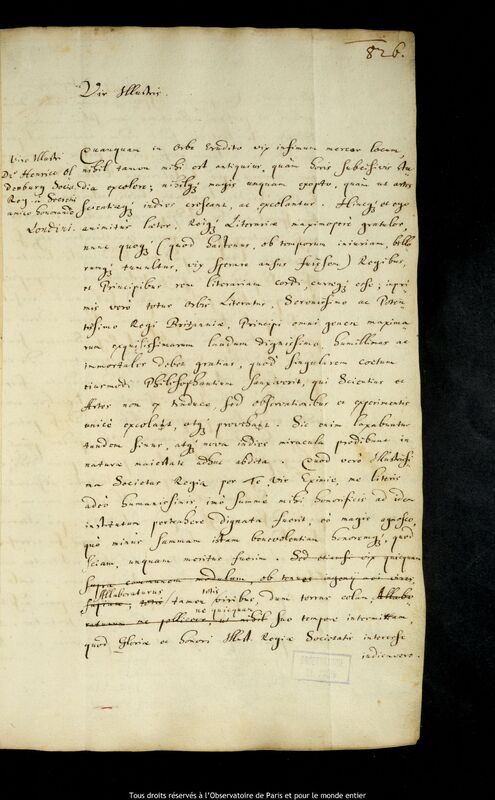 826.
Vir Illustris.
Viro Illustri
Dn. Henrico Ol
denburg Societ.
Reg. in
amico honorando
Londini.
Quanquam in Orbe Erudito vix infimum merear locum,
nihil tamen mihi est antiquius, quàm horis subcisivis stu
dia excolere; nihilq; magis unquam exopto, quàm ut artes
Scientiaeq; indies crescant, ac excolantur. Hincq; et ego
animitus laetor, Reiq; Literariae maximopere gratulor,
nunc quoq; (quod hactenus, ob temporum iniuriam, belli
cumq; tumultus, vix sperare ausus fuissem) Regibus,
et Principibus rem literariam cordi, curaeq; esse; inpri
mis verò totus Orbis Literatus, Serenissimo ac Poten
tissimo Regi Britanniae, Principi omni genere maxima
rum exquisitissimarum laudum dignissimo, humillimas ac
immortales debet gratias, quod singularem coetum
eiusmodi Philosophantium sanxiverit, qui Scientias et
Artes non ex traduce, sed observationibus et experimentis
unicè excolant, atq; provehant. Sic enim laxabuntur
tandem sinus, atq; nova indies miracula prodibunt in
naturae maiestate adhuc abdita. Quod verò Illustrissi
ma Societas Regia per Te Vir Eximie, me literis
adeò humanissimis imò summè mihi honorificis ad idem
institutum pertrahere dignata fuerit, eò magis agnosco,
quò minùs summam istam benevolentiam honoremq;, quod
sciam, unquam meritus fuerim. Sed etiamsi vix quicquam
supra communem modulum, ob tenues ingenij mei vires,
Allaboraturus totis
sapiam, totis tamen viribus, dum terras colam, Allabo
ne quicquam
raturum ac polliceor, ut nihil suo tempore intermittam,
quod Gloriae et honori Illust. Regiae Societatis interesse
indicavero.
Tous droits réservés à l'Observatoire de Paris et pour le monde entier